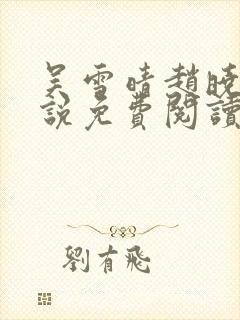 吴雪晴趙晓
說免費閱讀
劉有飛